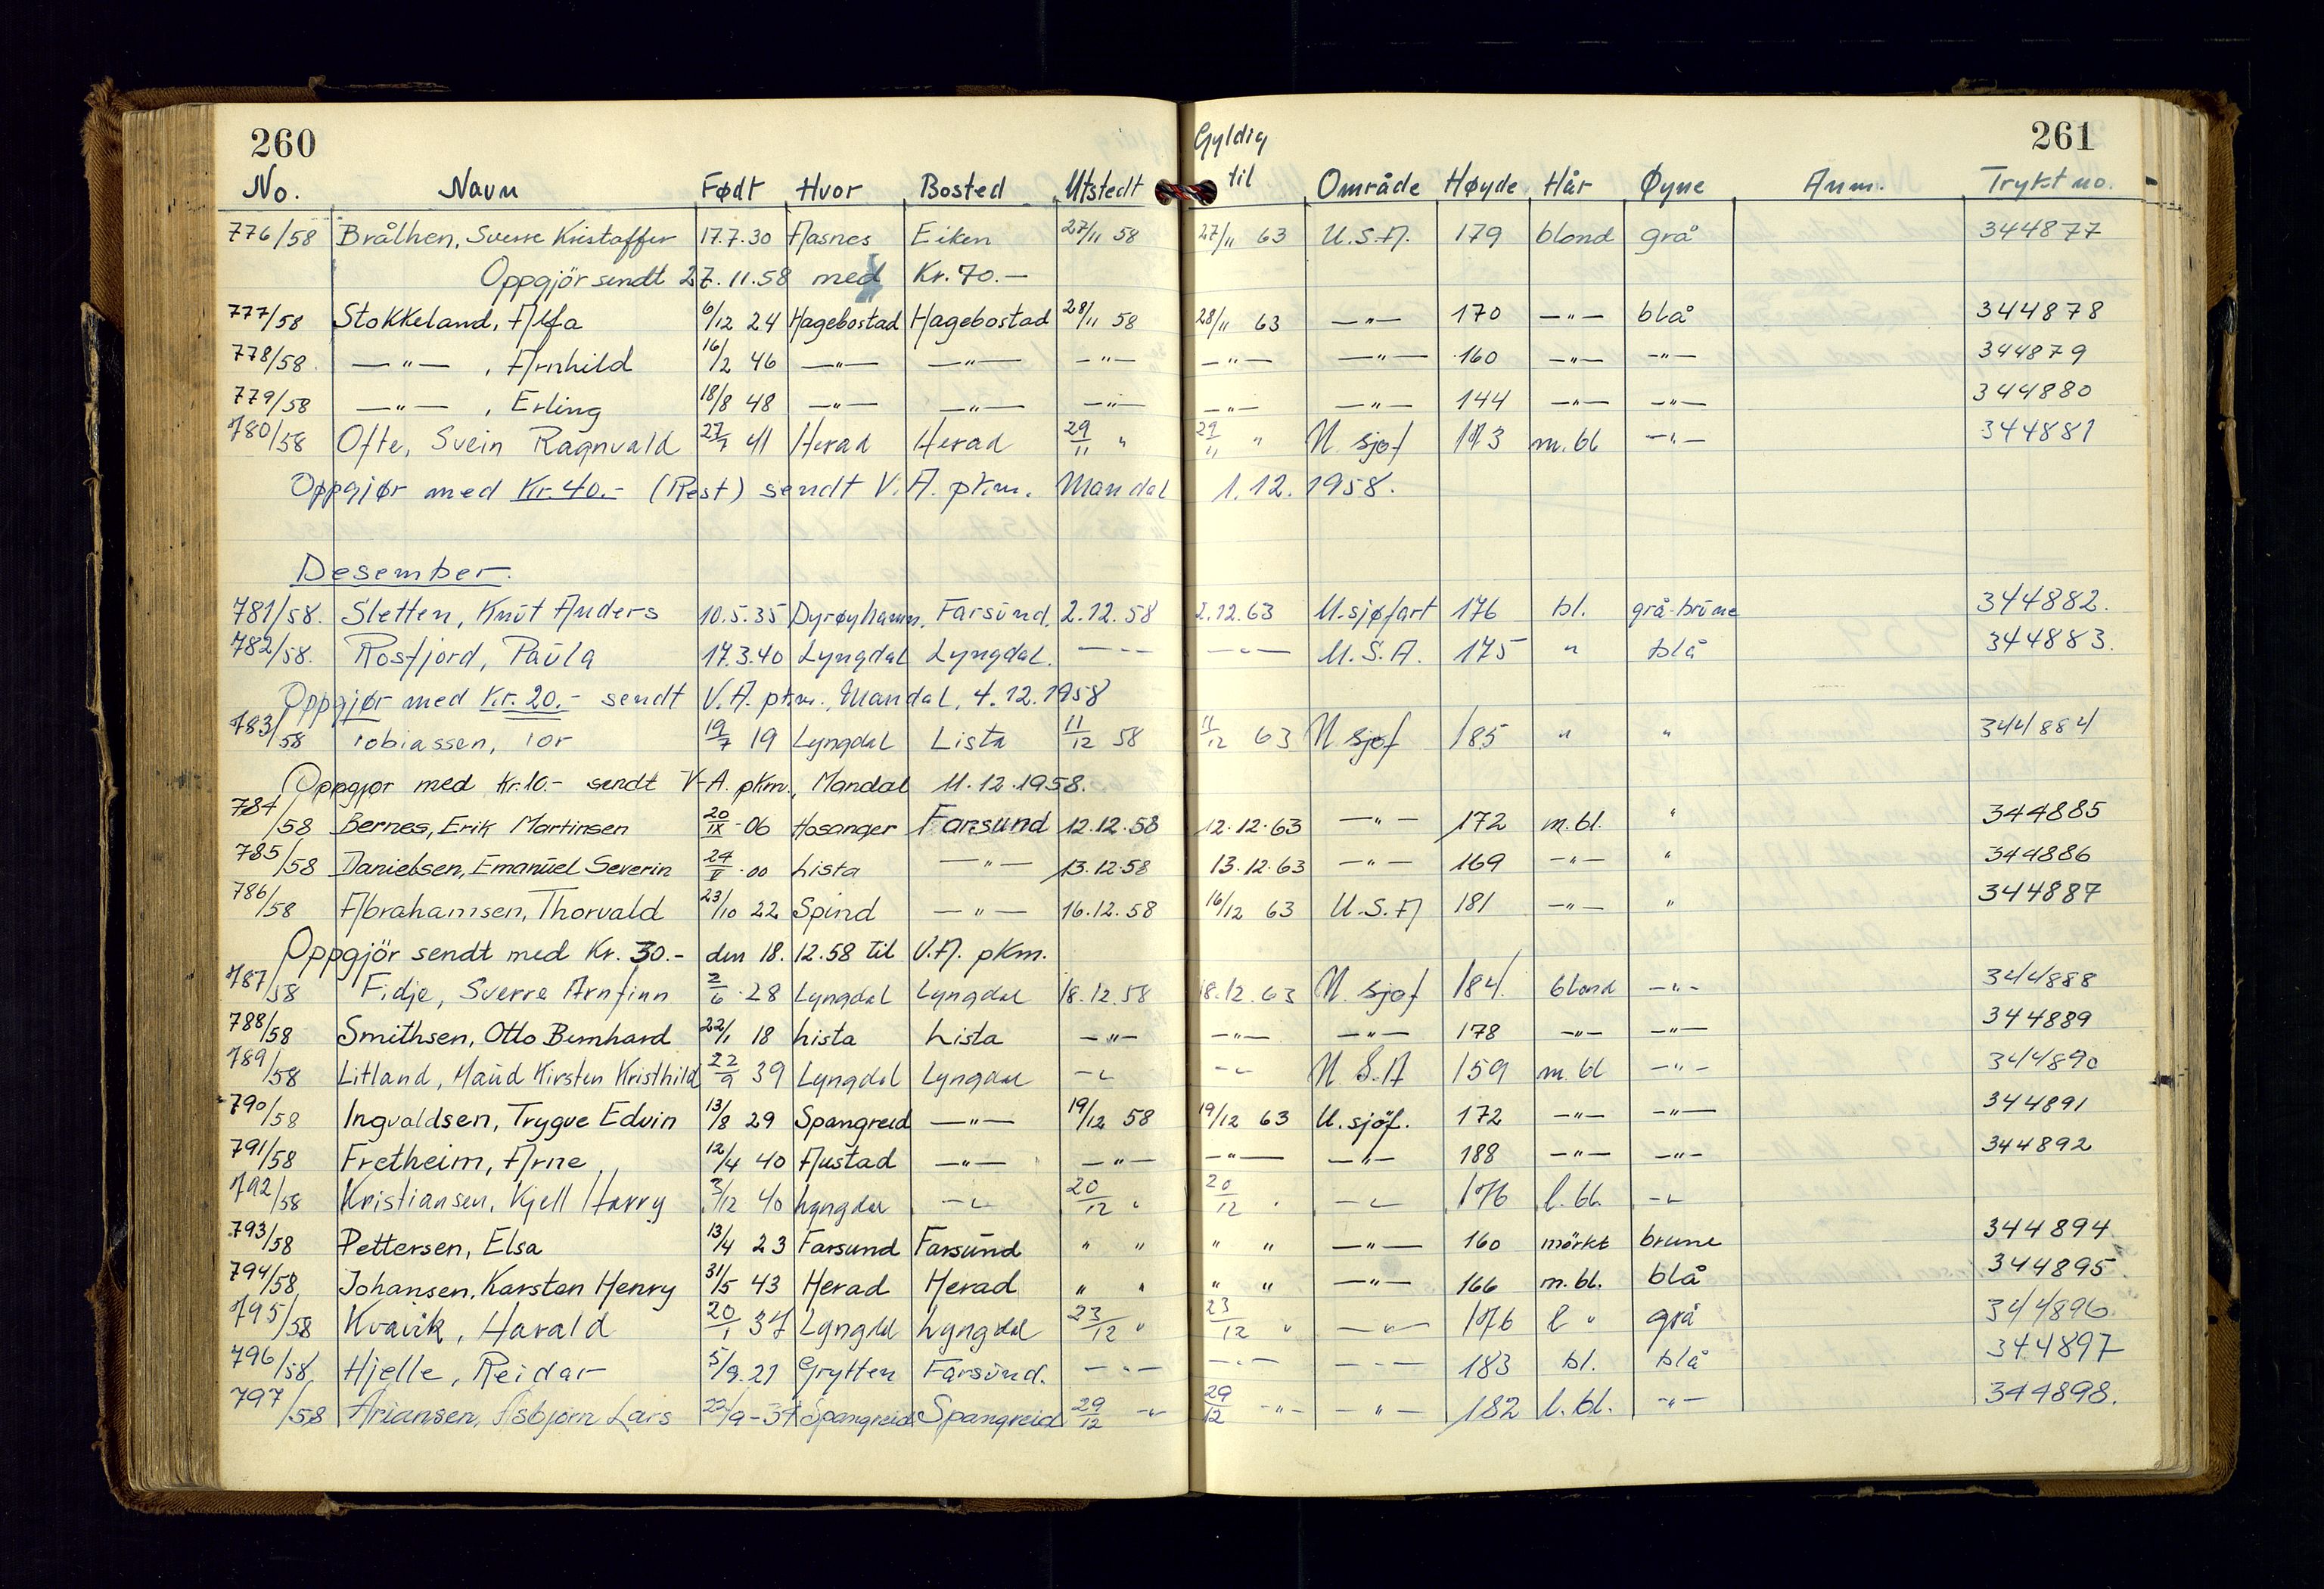 260 261
No. Navn Født Hvor Bosted Utstedt Gyldig til Område Høyde Hår Øyne Anm. Trykt no.
776/58 Bråthen, Sverre Kristoffer 17.7.30 Åsnes Eiken 27/11 58 27/11 63 U.S.A. 179 blond grå 344877
Oppgjör sendt 27.11.58 med Kr. 70.—
777/58 Stokkeland, 6/12 24 Hægebostad Hægebostad 28/11 58 28/11 63 —"— 170 —"— blå 344878
778/58 —"— , Arnhild 16/2 46 —"— —"— —"— —"— —"— 160 —"— —"— 344879
779/58 —"— , Erling 18/8 48 —"— —"— —"— —"— —"— 144 —"— —"— 344880
780/58 Ofte, Svein Ragnvald 27/7 41 Herad Herad 29/11 " 29/11 " U sjøf 173 m.bl —"— 344881
Oppgjør med Kr. 40.- (Rest) sendt V.A. pkm. Mandal 1.12.1958.
Desember.
781/58. Sletten, Knut Anders 10.5.35 Dyrøyhamn, Farsund, 2.12.58 2.12.63 U.sjøfart 176 bl. grå-brune 344882.
782/58. Rosfjord, Paula 17.3.40 Lyngdal Lyngdal. —"— —"— U.S.A. 175 " blå 344883.
Oppgjør med Kr. 20.- sendt V.A. pkm., Mandal, 4.12.1958
783/58 Tobiassen, Tor 19/7 19 Lyngdal Lista 11/12 58 11/12 63 U sjøf 185 " " 344884
Oppgjør med Kr.10.- sendt V-A. pkm., Mandal 11.12.1958.
784/58 Bernes, Erik Martinsen 20/IX-06 Hosanger Farsund 12.12.58 12.12.63 —"— 172 m.bl. " 344885
785/58 Danielsen, Emanuel Severin 24/V-00 Lista —"— 13.12.58 13.12.63 —"— 169 —"— " 344886
786/58 Abrahamsen, Thorvald 23/10 22 Spind —"— 16.12.58 16/12 63 U.S.A 181 —"— " 344887
Oppgjör sendt med Kr. 30.- den 18.12.58 til V.A. pkm.
787/58 Fidje, Sverre Arnfinn 2/6-28 Lyngdal Lyngdal 18.12.58 18.12.63 U. sjøf 184. blond —"— 344888
788/58 Smithsen, Otto Bernhard 22/1 18 Lista Lista —"— —"— —"— 178 —"— —"— 344889
789/58 Litland, Maud Kirsten Kristhild 22/9 39 Lyngdal Lyngdal —"— —"— U S.A 159 m.bl —"— 344890
790/58 Ingvaldsen, Trygve Edvin 13/8 29 Spangreid —"— 19/12 58 19/12 63 U.sjöf. 172 —"— —"— 344891
791/58 Fretheim, Arne 12/4 40 Austad —"— —"— —"— —"— 188 —"— —"— 344892
792/58 Kristiansen, Kjell Harry 3/12 40 Lyngdal —"— 20/12 " 20/12 " —"— 176 l.bl. —"—
793/58 Pettersen, Elsa 13/4 23 Farsund Farsund " " " " —"— 160 mörkt brune 344894
794/58 Johansen, Karsten Henry 31/5 43 Herad Herad " " " " —"— 166 m.bl. blå 344895
795/58 Kvavik, Harald 20/1 37 Lyngdal Lyngdal 23/12 " 23/12 " —"— 176 l " grå 344896
796/58 Hjelle, Reidar 5/9.21 Grytten Farsund. —"— —"— —"— 183 bl. blå 344897
797/58 Ariansen, Asbjørn Lars 22/9-37 Spangreid Spangreid 29/12 —"— 29/12 —"— —"— 182 l.bl. —"— 344898.